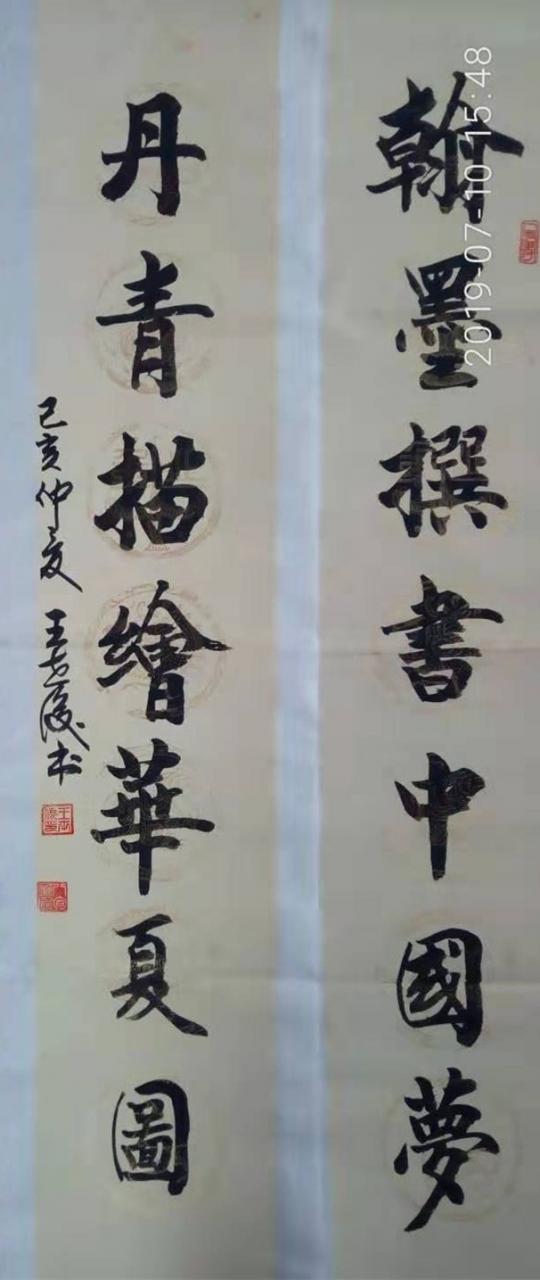 翰墨撰書中國夢
丹青描繪華夏圖
己亥仲夏 王世陵书
2019-07-10 15:48